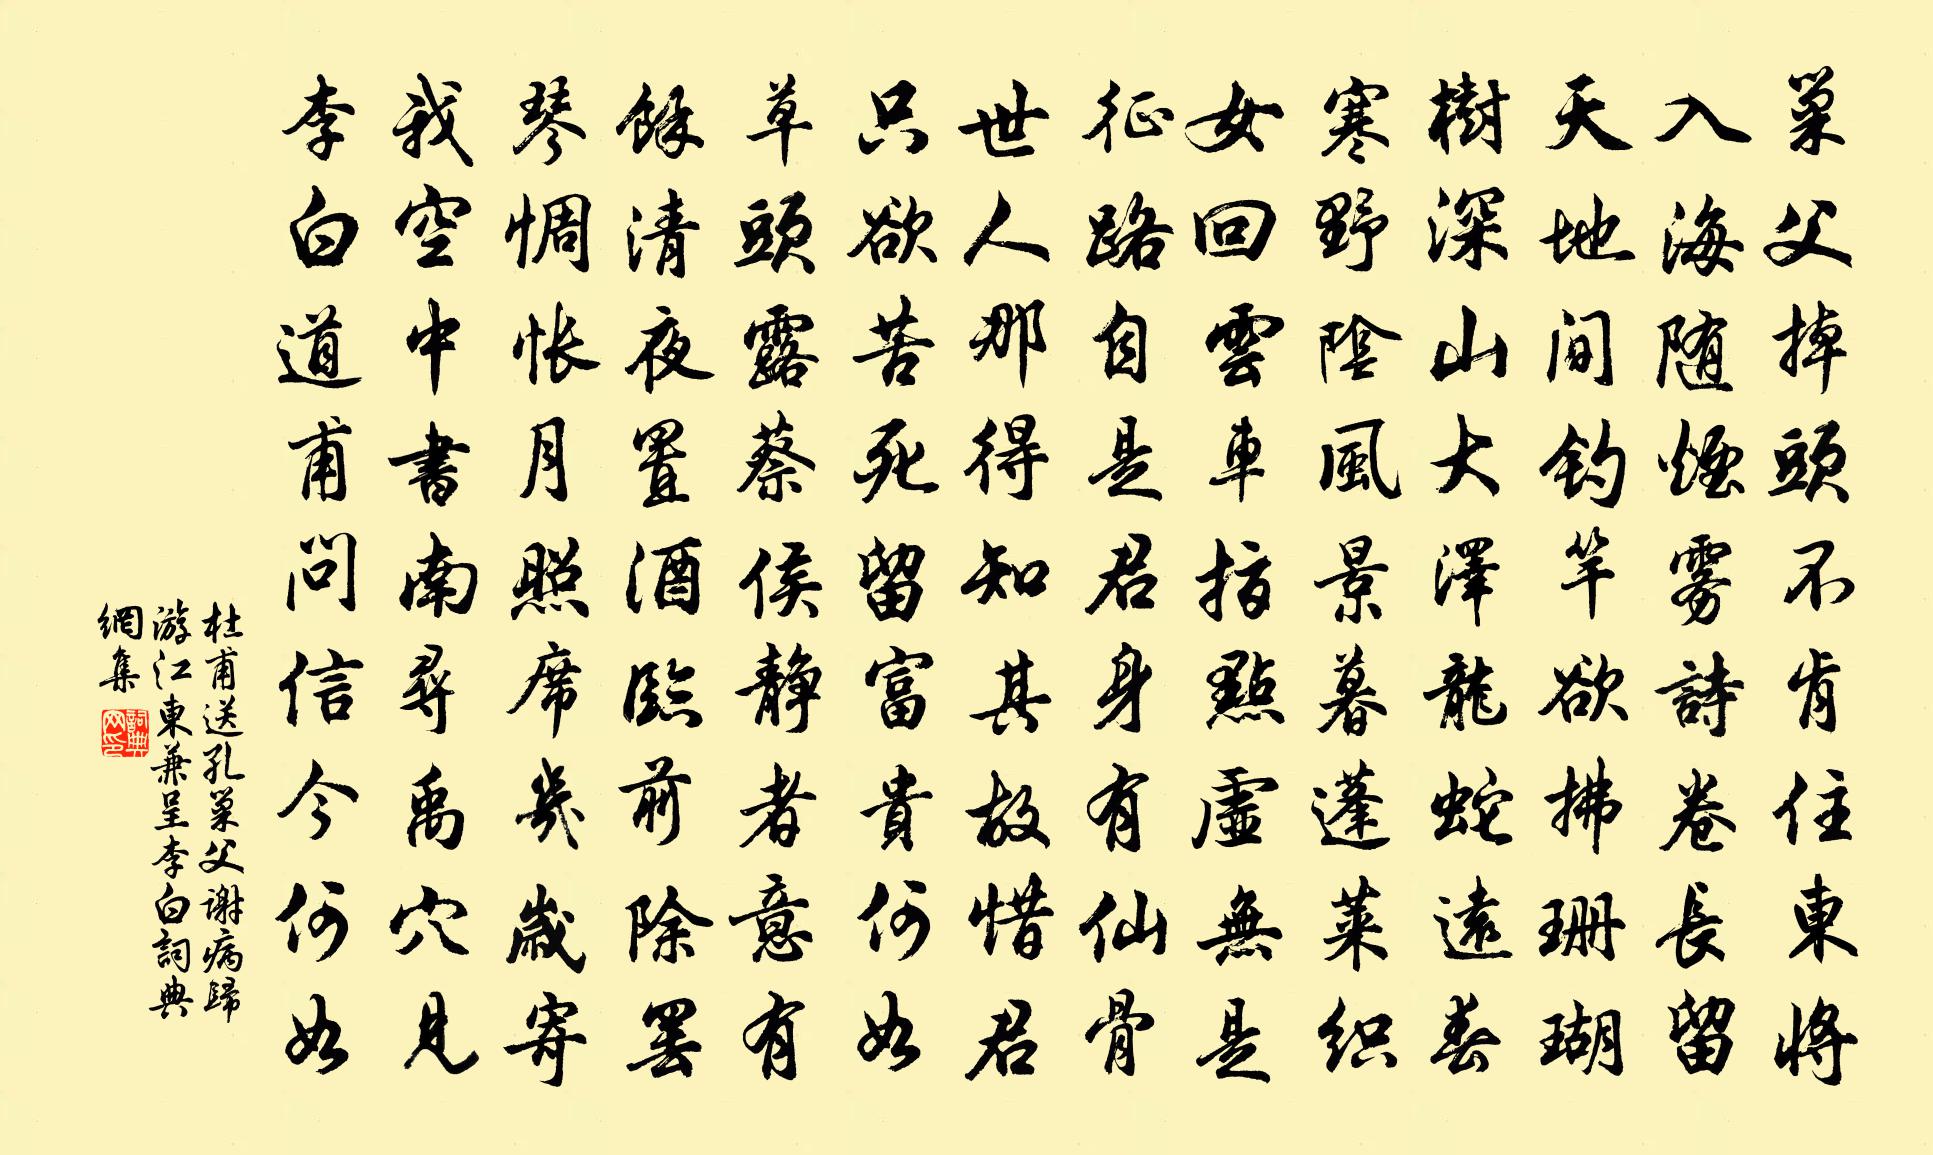 巢父掉頭不肯住東將
入海随煙雾詩卷長留
天地间釣竿欲拂珊瑚
樹深山大澤龍蛇遠春
寒野陰風景暮蓬萊織
女回雲車指點虛無是
征路自是君身有仙骨
世人那得知其故惜君
只欲苦死留富貴何如
草頭露蔡侯靜者意有
餘清夜置酒臨前除罷
琴惆悵月照席幾歲寄
我空中書南尋禹穴見
李白道甫問信今何如
杜甫送孔巢父謝病歸
游江東兼呈李白詞典
網集
詞典
网印